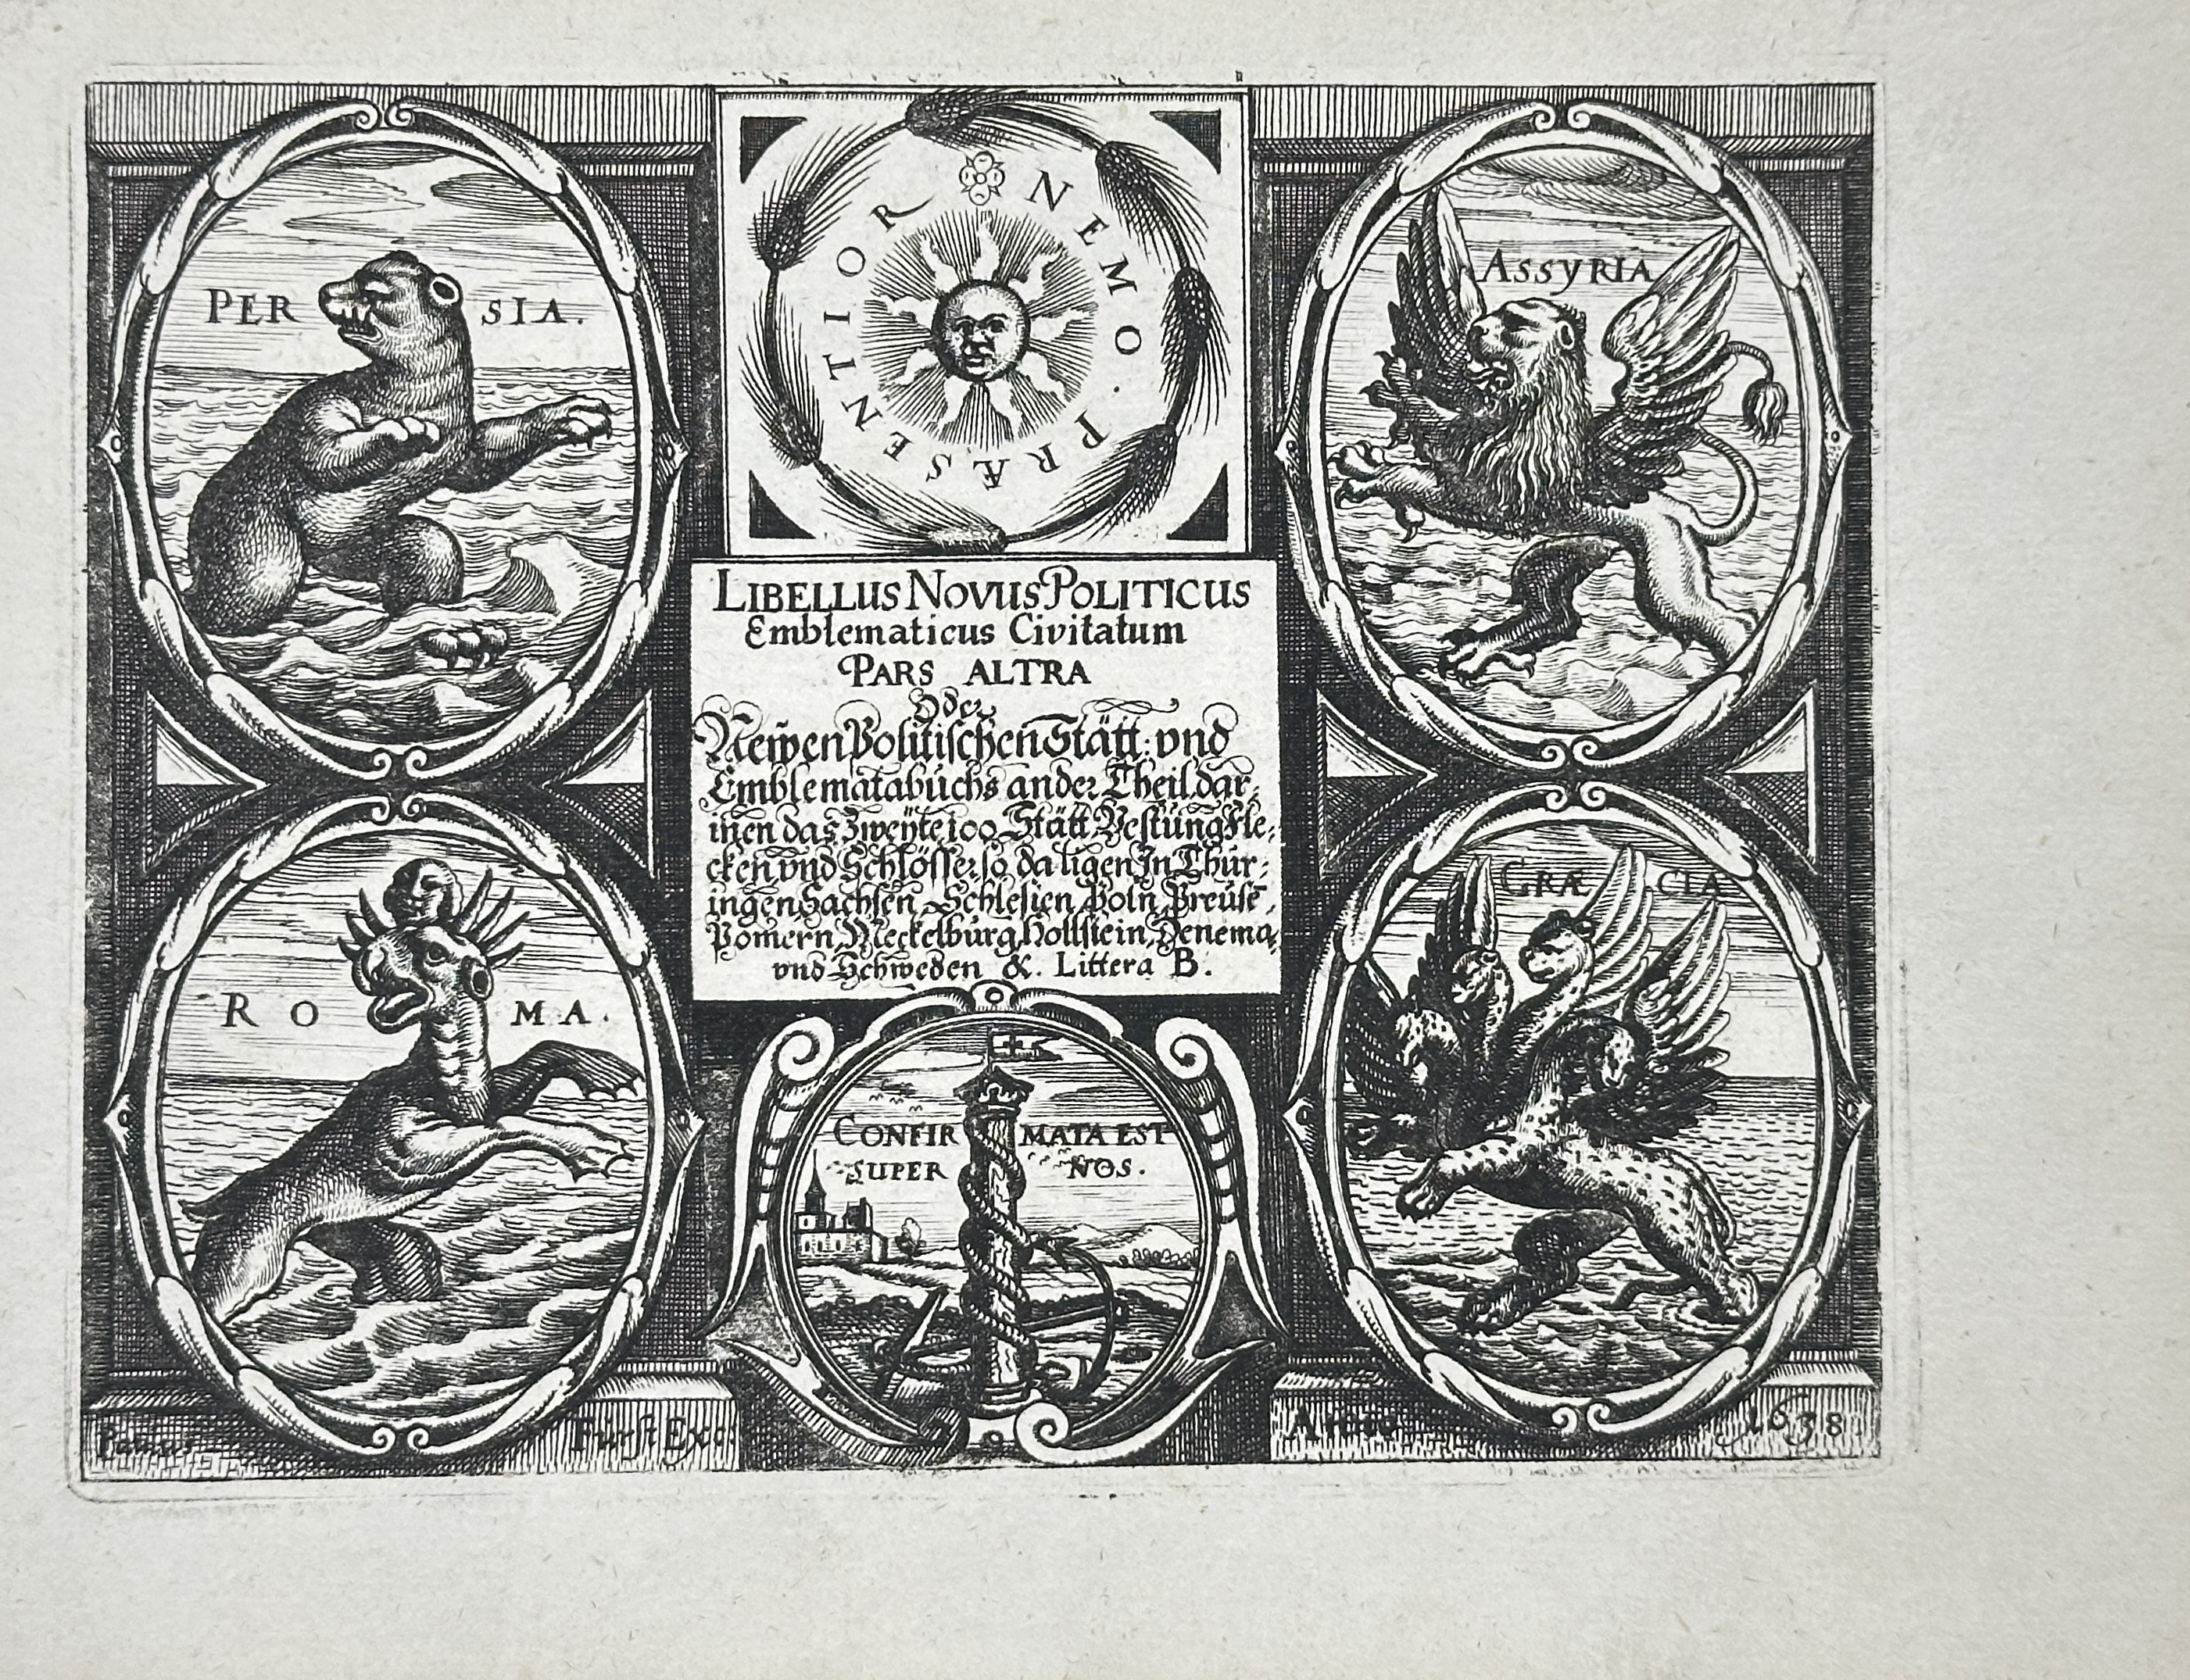 PERSIA.
NEMO · PRÆSENTIOR
ASSYRIA
LIBELLUS NOVUS POLITICUS
Emblematicus Civitatum
PARS ALTRA
Oder
Neiven Politischen Stätt: vnd
Emblematabuchs ander Theil dar:
inen das Zweÿte 100 Stätt Vestŭng Fle:
cken vnd Schlösser so da ligen In Thür:
ingen, Sachsen, Schlesien, Poln, Preŭsē,
Pomern, Meckelbŭrg, Hollstein, Denema,
vnd Schweden &. Littera B.
ROMA.
GRÆCIA
CONFIRMATA EST
SUPER NOS.
Paulus Fürst Exc
Anno 1638